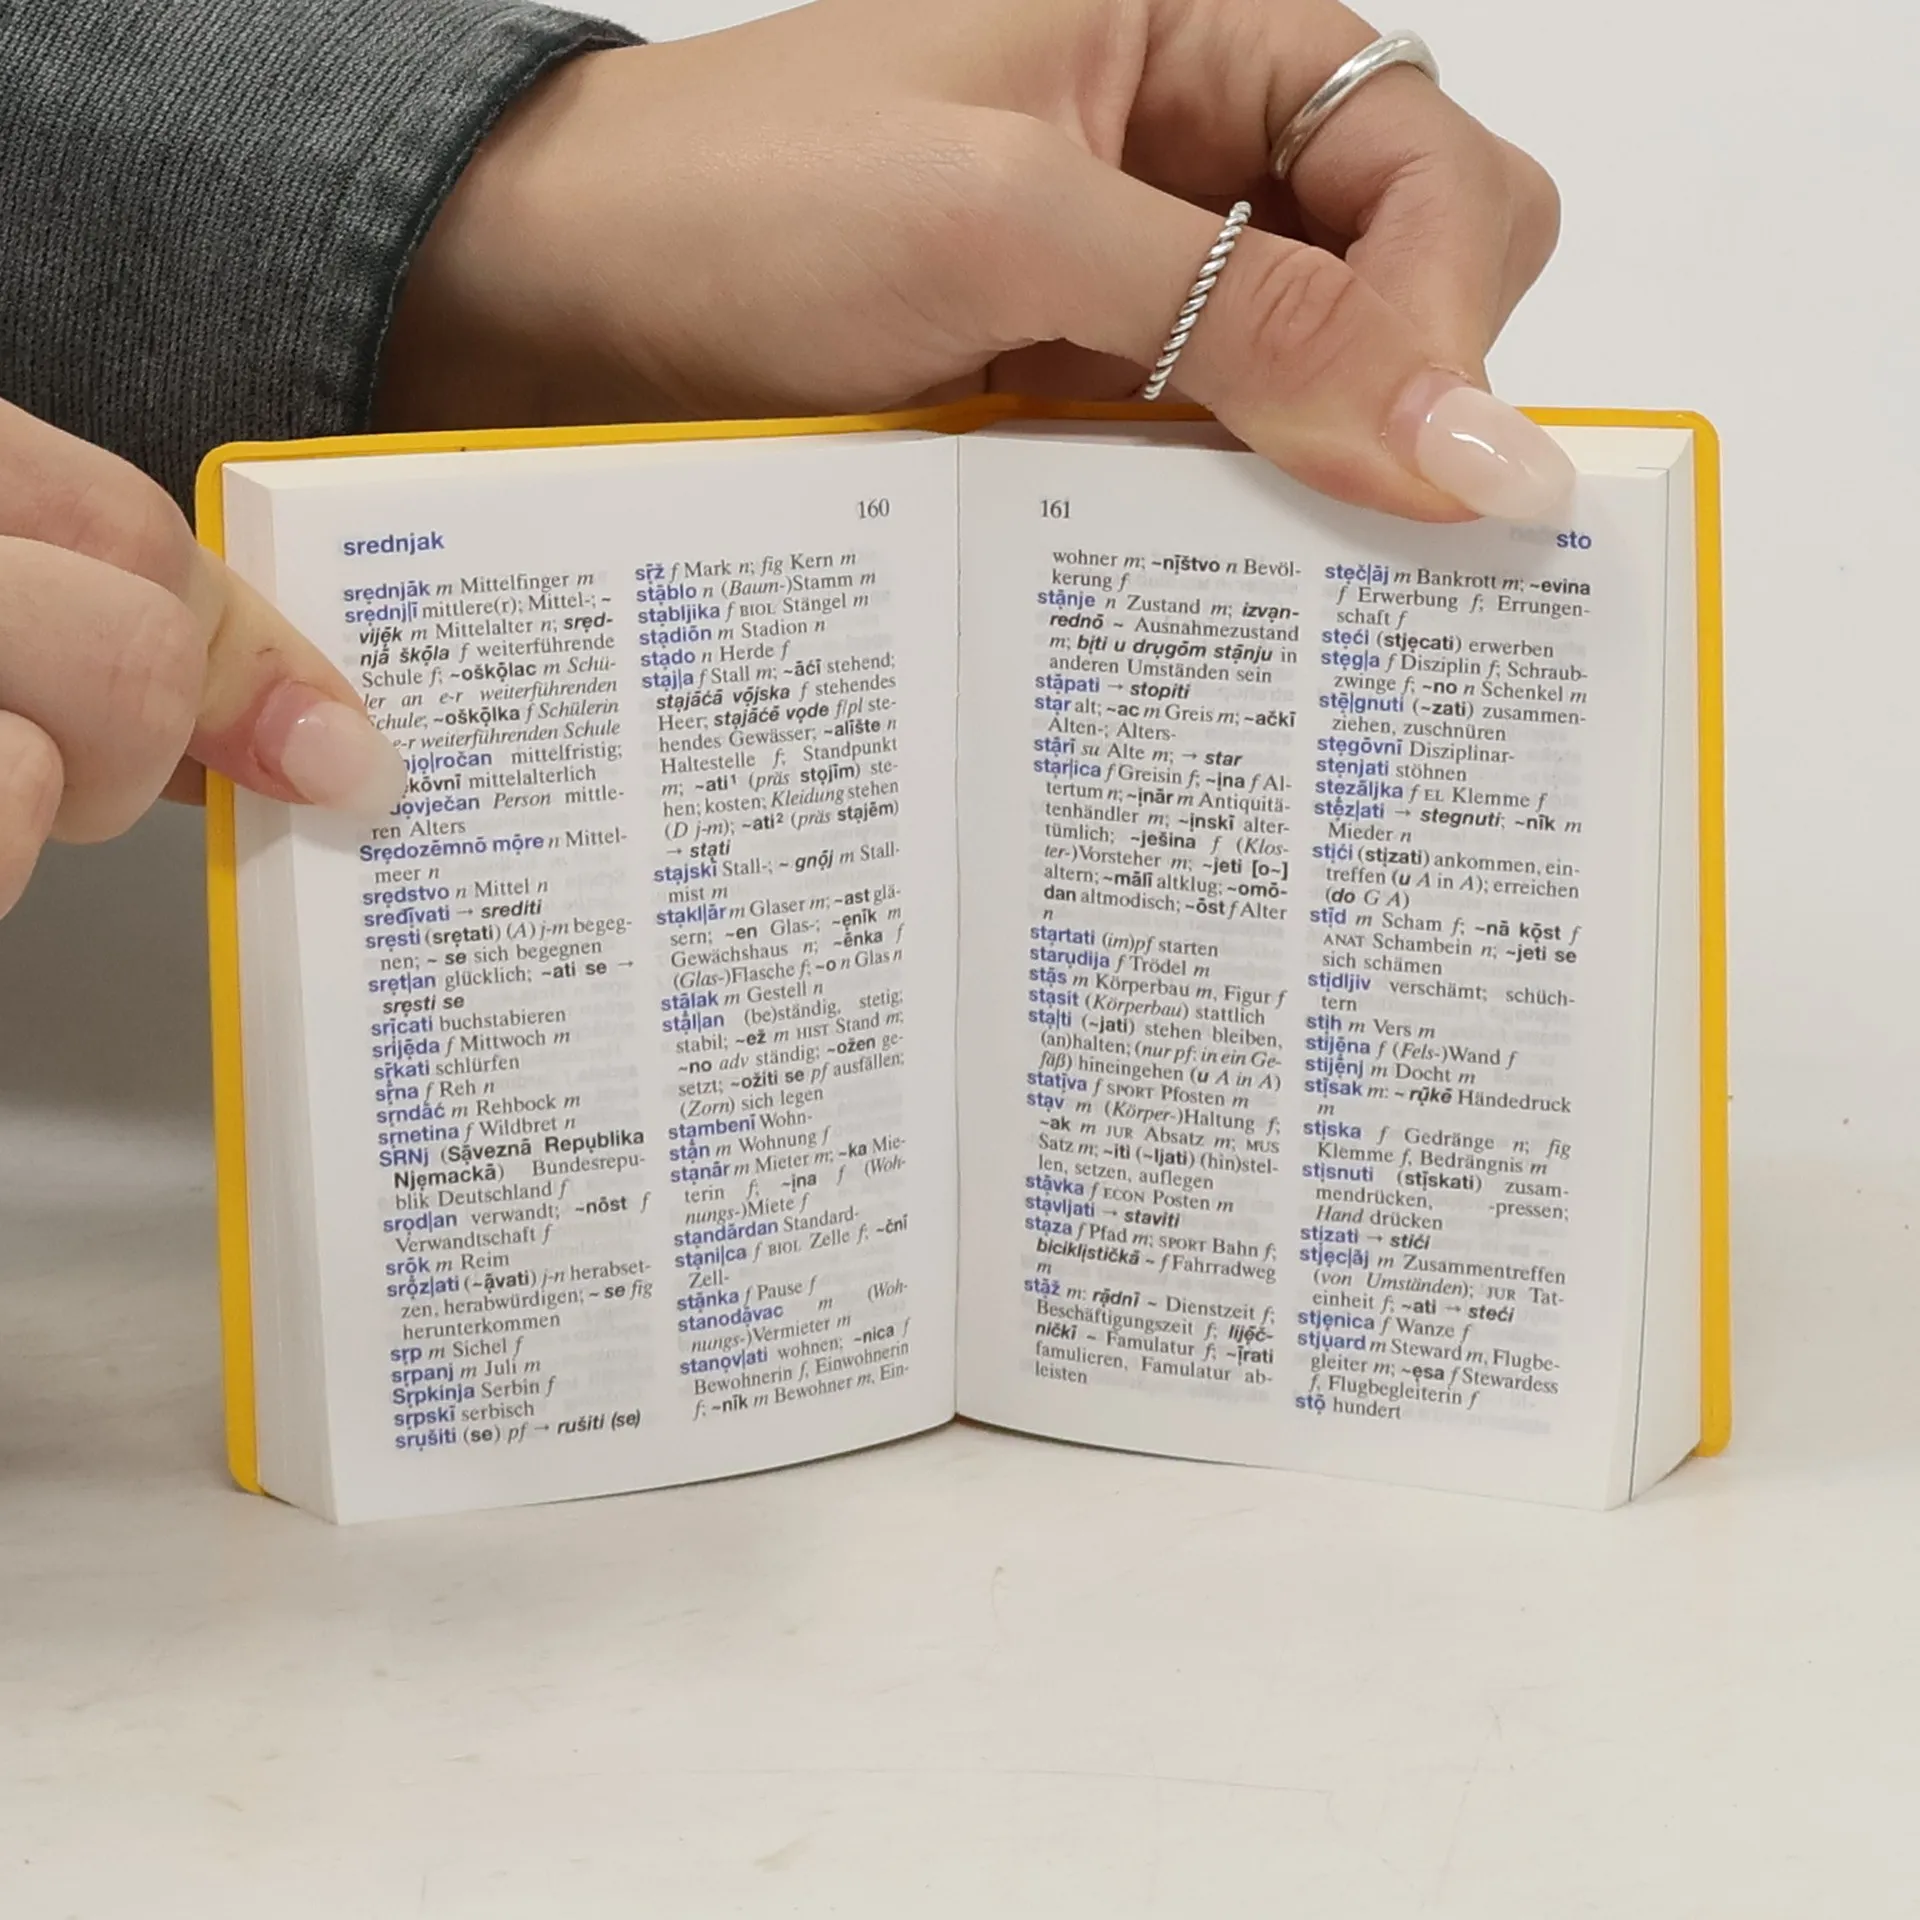 160
srednjak
srẹdnjāk m Mittelfinger m
srẹdnj|ī mittlere(r); Mittel-; ~
vijẹ̄k m Mittelalter n; srẹd-
njā škọ̄la f weiterführende
Schule f; ~oškọ̄lac m Schü-
ler an e-r weiterführenden
Schule; ~oškọ̄lka f Schülerin
e-r weiterführenden Schule
njọ|ročan mittelfristig;
kōvnī mittelalterlich
dọvječan Person mittle-
ren Alters
Srẹdozēmnō mọ̄re n Mittel-
meer n
srẹdstvo n Mittel n
sređīvati → srediti
srẹsti (srẹtati) (A) j-m begeg-
nen; ~ se sich begegnen
srẹt|an glücklich; ~ati se →
srẹsti se
srīcati buchstabieren
srijẹ̄da f Mittwoch m
sṝkati schlürfen
sṝna f Reh n
sṛndāć m Rehbock m
sṛnetina f Wildbret n
SRNj (Sạ̄veznā Repụblika
Njẹmačkā) Bundesrepu-
blik Deutschland f
srọd|an verwandt; ~nōst f
Verwandtschaft f
srọ̄k m Reim
srọ̄z|ati (~ạ̄vati) j-n herabset-
zen, herabwürdigen; ~ se fig
herunterkommen
sṛp m Sichel f
sṛpanj m Juli m
Sṛpkinja Serbin f
sṛpskī serbisch
srụšiti (se) pf → rušiti (se)
sṝž f Mark n; fig Kern m
stāblo n (Baum-)Stamm m
stạbljika f BIOL Stängel m
stạdiōn m Stadion n
stạdo n Herde f
stạj|a f Stall m; ~āćī stehend;
stạjāćā vọ̄jska f stehendes
Heer; stạjāćē vọde f/pl ste-
hendes Gewässer; ~alīšte n
Haltestelle f; Standpunkt
m; ~ati¹ (präs stọjīm) ste-
hen; kosten; Kleidung stehen
(D j-m); ~ati² (präs stạjēm)
→ stạti
stạjskī Stall-; ~ gnōj m Stall-
mist m
stạkl|ār m Glaser m; ~ast glä-
sern; ~en Glas-; ~ẹnīk m
Gewächshaus n; ~ēnka f
(Glas-)Flasche f; ~o n Glas n
stālak m Gestell n
stāl|an (be)ständig, stetig;
stabil; ~ež m HIST Stand m;
~no adv ständig; ~ožen ge-
setzt; ~ožiti se pf ausfällen;
(Zorn) sich legen
stạmbenī Wohn-
stān m Wohnung f
stạnār m Mieter m; ~ka Mie-
terin f; ~ịna f (Woh-
nungs-)Miete f
standārdan Standard-
stạni|ca f BIOL Zelle f; ~čnī
Zell-
stānka f Pause f
stanodāvac m (Woh-
nungs-)Vermieter m
stanọv|ati wohnen; ~nica f
Bewohnerin f, Einwohnerin
f; ~nīk m Bewohner m, Ein-
161
sto
wohner m; ~nīštvo n Bevöl-
kerung f
stānje n Zustand m; izvạn-
rednō ~ Ausnahmezustand
m; bịti u drụgōm stānju in
anderen Umständen sein
stāpati → stopiti
stạr alt; ~ac m Greis m; ~ačkī
Alten-; Alters-
stārī su Alte m; → star
stạr|ica f Greisin f; ~ịna f Al-
tertum n; ~ịnār m Antiquitä-
tenhändler m; ~ịnskī alter-
tümlich; ~ješina f (Klos-
ter-)Vorsteher m; ~jeti [o~]
altern; ~mālī altklug; ~omō-
dan altmodisch; ~ōst f Alter
n
stạrtati (im)pf starten
starụdija f Trödel m
stās m Körperbau m, Figur f
stạsit (Körperbau) stattlich
stạ|ti (~jati) stehen bleiben,
(an)halten; (nur pf: in ein Ge-
fäß) hineingehen (u A in A)
statịva f SPORT Pfosten m
stạv m (Körper-)Haltung f;
~ak m JUR Absatz m; MUS
Satz m; ~iti (~ljati) (hin)stel-
len, setzen, auflegen
stāvka f ECON Posten m
stạvljati → staviti
stạza f Pfad m; SPORT Bahn f;
biciklịstičkā ~ f Fahrradweg
m
stāž m: rādnī ~ Dienstzeit f;
Beschäftigungszeit f; liječ-
ničkī ~ Famulatur f; ~īrati
famulieren, Famulatur ab-
leisten
stẹč|āj m Bankrott m; ~evina
f Erwerbung f; Errungen-
schaft f
stẹći (stjẹcati) erwerben
stẹg|a f Disziplin f; Schraub-
zwinge f; ~no n Schenkel m
stē|gnuti (~zati) zusammen-
ziehen, zuschnüren
stẹgōvnī Disziplinar-
stẹnjati stöhnen
stezāljka f EL Klemme f
stēz|ati → stegnuti; ~nīk m
Mieder n
stịći (stịzati) ankommen, ein-
treffen (u A in A); erreichen
(do G A)
stīd m Scham f; ~nā kọ̄st f
ANAT Schambein n; ~jeti se
sich schämen
stịdljiv verschämt; schüch-
tern
stịh m Vers m
stijēna f (Fels-)Wand f
stijēnj m Docht m
stīsak m: ~ rūkē Händedruck
m
stịska f Gedränge n; fig
Klemme f, Bedrängnis m
stịsnuti (stīskati) zusam-
mendrücken, -pressen;
Hand drücken
stịzati → stići
stjẹc|āj m Zusammentreffen
(von Umständen); JUR Tat-
einheit f; ~ati → steći
stjẹnica f Wanze f
stjụard m Steward m, Flugbe-
gleiter m; ~ẹsa f Stewardess
f, Flugbegleiterin f
stọ̄ hundert